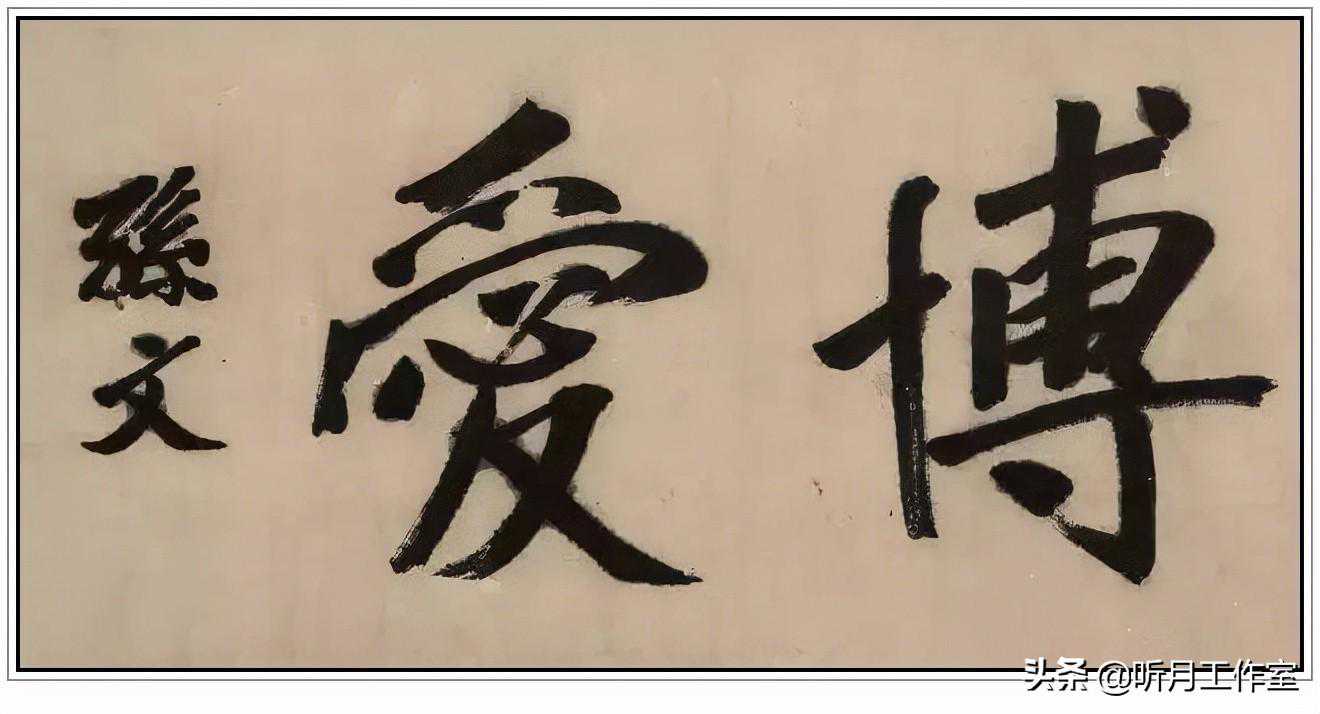 博愛
孫文
头条 @听月工作室